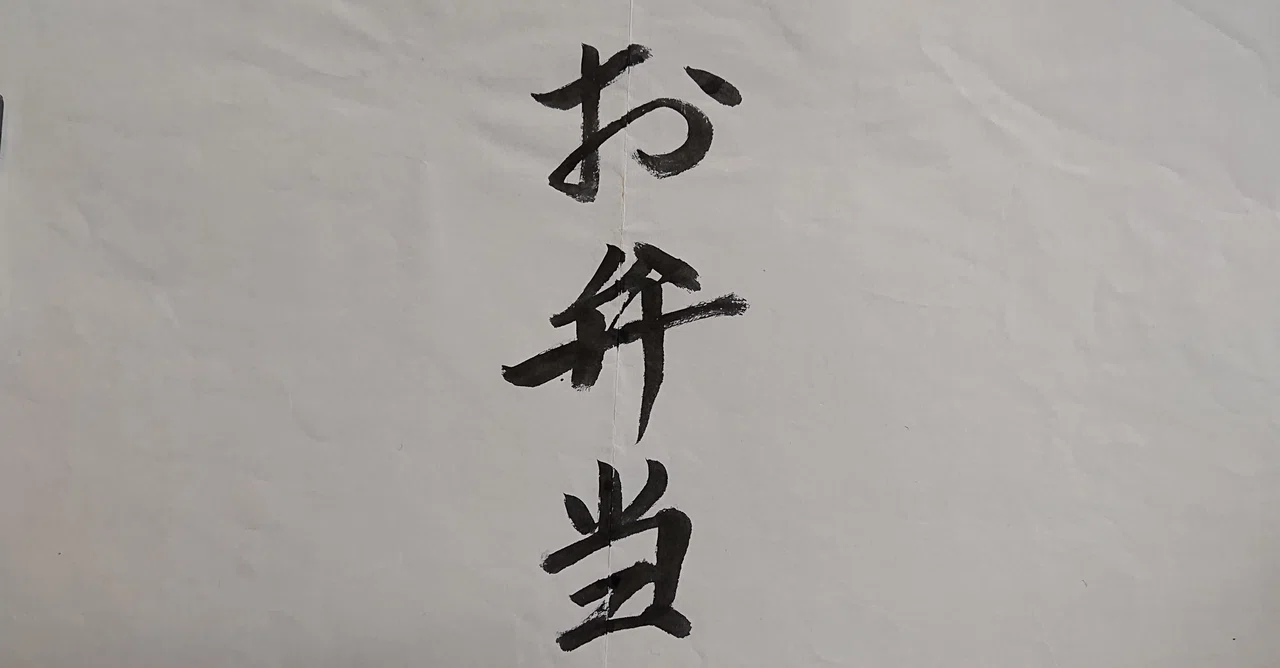 お弁当